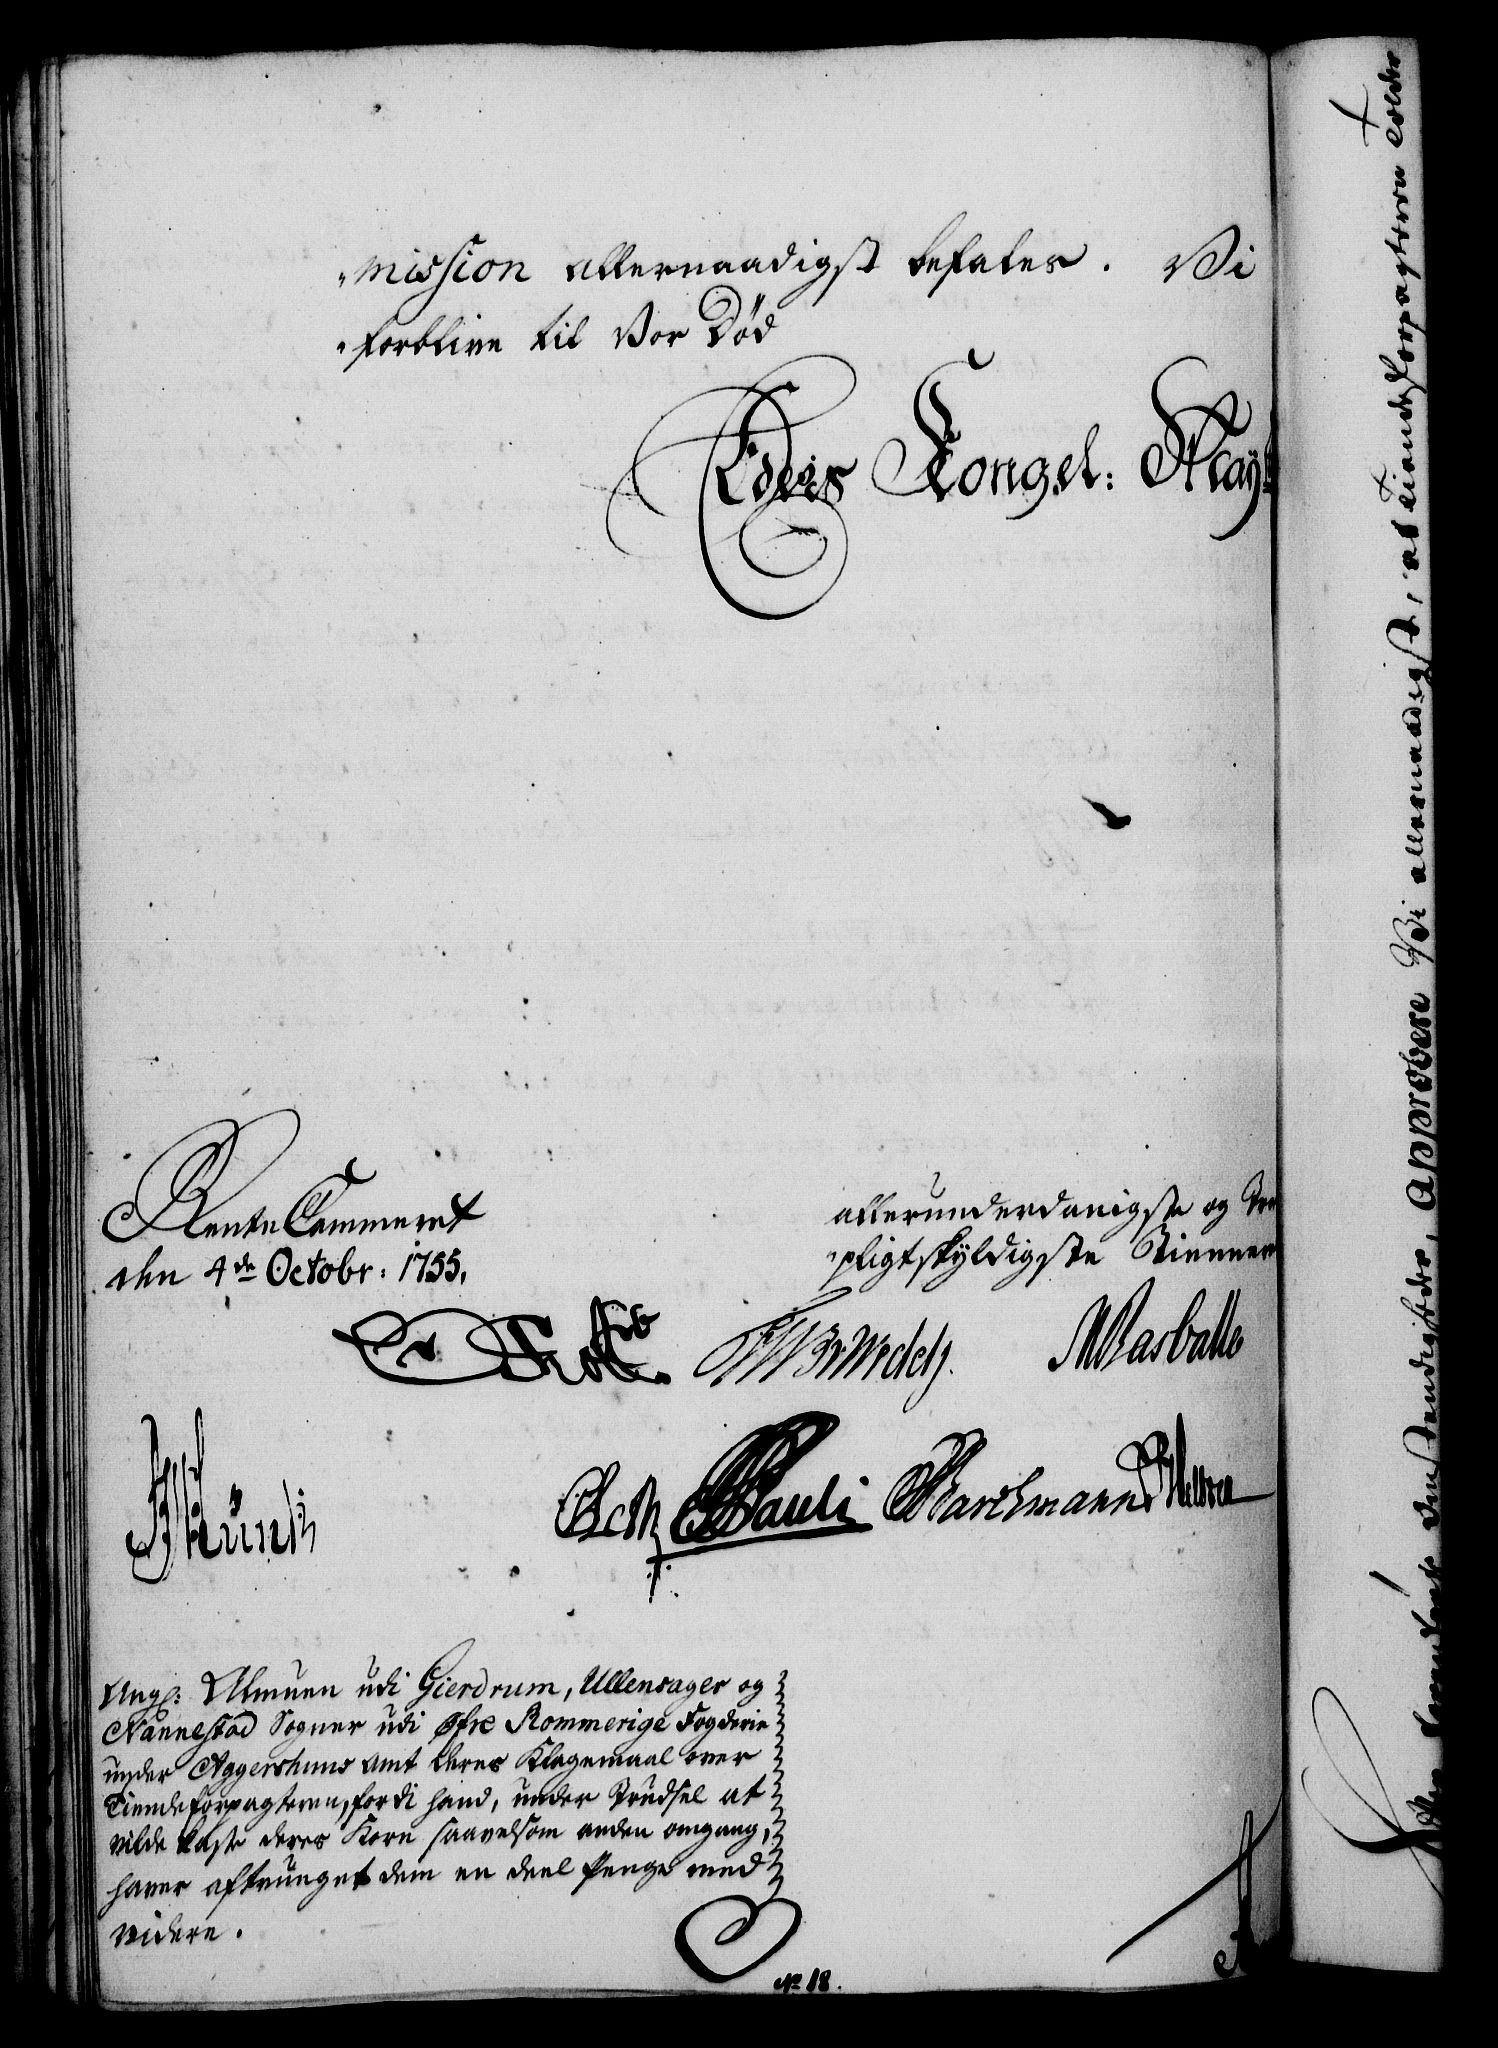 mission allernaadigst befales. Vi
forblive til Vor Död
Eders Kongel: May:
Rente Cammeret
den 4de Octobr: 1755.
allerunderdanigste og
pligtskÿldigste Tienner
Holst
Rasballe
Münch
Pauli Barchmann
Ang: Almuen udi Gierdrum, Ullensager og
Nannestad Sogner udi Öfre Rommerige Fogderie
under Aggershuus Amt deres Klagemaal over
Tiendeforpagteren, fordi hand, under Trudsel at
vilde kaste deres Korn saavelsom anden omgang,
haver aftvunget dem en deel Penge med
videre.
No 18.
Approbere Vi allernaadigst, at Tiendeforpagteren